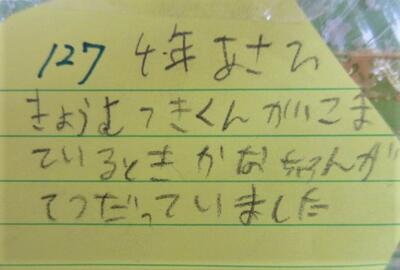 127 4年 あさひ
きょうむつきくんがこま
ているときかなちゃんが
てつだっていました